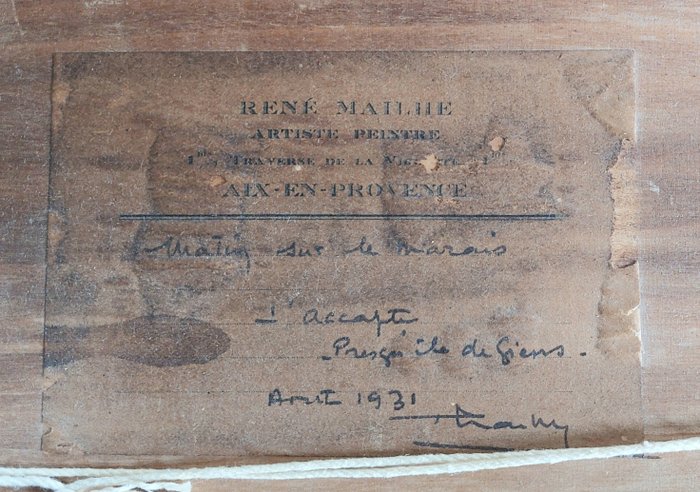 RENÉ MAILHE
ARTISTE PEINTRE
TRAVERSE DE LA
AIX-EN-PROVENCE
Matin sur le marais
L'accapte
Presqu'ile de Giens.
Aout 1931